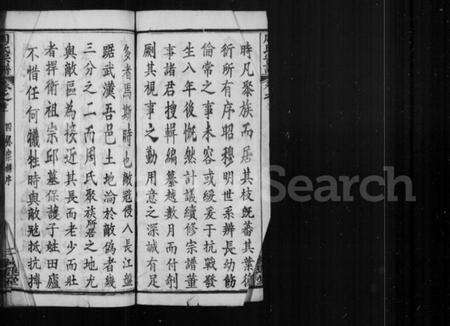 時凡聚族而居其枝旣蕃其葉衍
衍所有序昭穆明世系辨長幼飭
倫常之事未容或緩爰于抗戰發
生八年後慨然計議續修宗譜董
事諸君搜輯編纂越數月而付剞
劂其視事之勤用意之深誠有足
多者焉斯時也敵寇侵入長江盤
踞武漢吾邑土地淪於敵偽者幾
三分之二而周氏聚族所居之地尤
與敵區為接近其長而老少而壯
者捍衛祖宗邱墓保護子姪田廬
不惜任何犧牲時與敵尟抵抗搏
Search